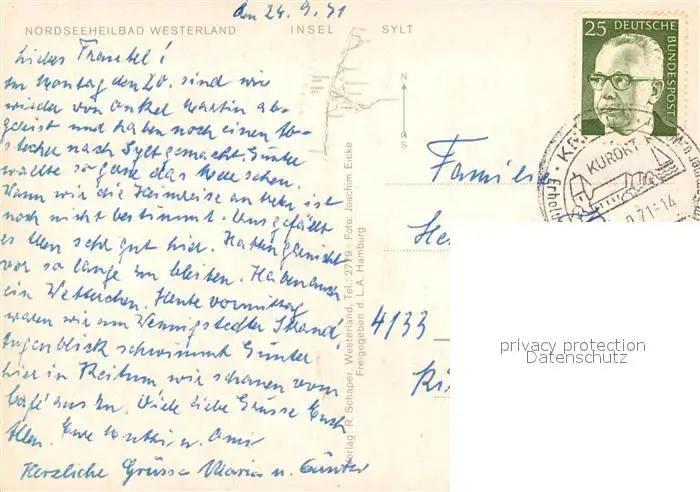 den 24.9.71
NORDSEEHEILBAD WESTERLAND INSEL SYLT
Liebes !
Am Montag den 20. sind wir
wieder von Onkel Martin ab-
gereist und haben noch einen Ab-
stecher nach Sylt gemacht. Günter
wollte so gerne das Meer sehen.
Wann wir die Heimreise antreten, ist
noch nicht bestimmt. Uns gefällt
es allen sehr gut hier. Hatten gar nicht
vor so lange zu bleiten. Haben aber
ein Wetterchen. Heute vormittag
waren wir am Wennigstedter Strand,
Augenblick schwimmt Günter
hier in Keitum wir schauen vom
Café aus zu. Viele liebe Grüsse Euch
Allen. Eure u.
Herzliche Grüsse Maria u. Günter
N
S
Verlag R. Schaper, Westerland, Tel.: 2719 · Foto: Joachim Eicke
Freigegeben d. L.A. Hamburg
25 DEUTSCHE BUNDESPOST
KURORT
71-14
Familie
4133
privacy protection
Datenschutz